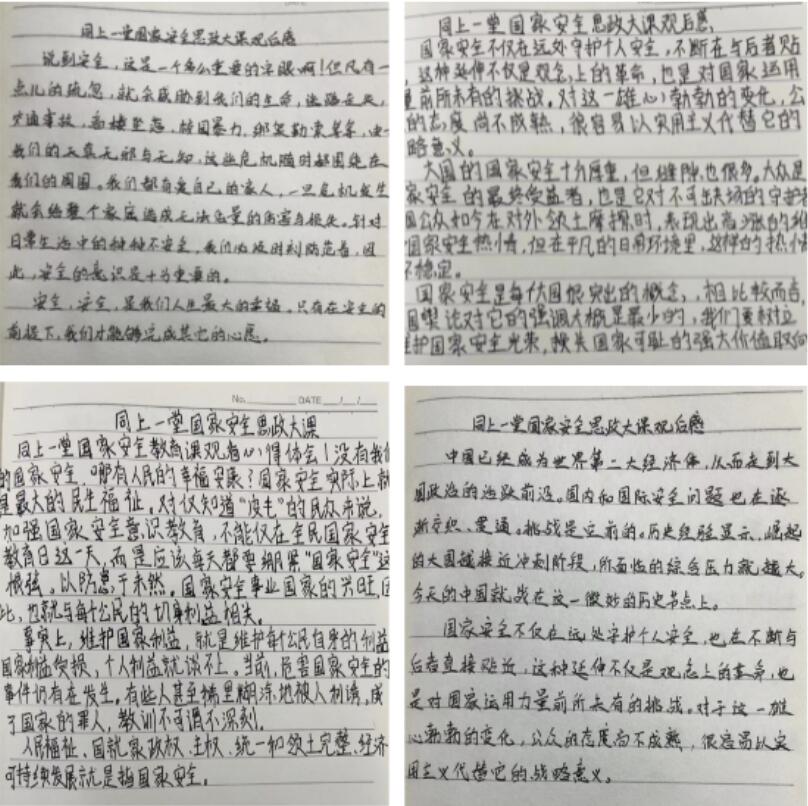 同上一堂国家安全思政大课观后感
说到安全，这是一个多么重要的字眼啊！但凡有一
点儿的疏忽，就会威胁到我们的生命，
交通事故，高楼坠落，校园暴力，绑架勒索等等，由于
我们的天真无邪与无知，这些危机随时都围绕在
我们的周围。我们都有爱自己的家人，一旦危机发生
就会给整个家庭造成无法估量的伤害与损失。针对
日常生活中的种种不安全，我们必须时刻防范着，因
此，安全的意识是十分重要的。
安全，安全，是我们人生最大的幸福。只有在安全的
前提下，我们才能够完成其它的心愿。
同上一堂国家安全思政大课观后感
国家安全不仅在远处守护个人安全，不断在与后者贴
这种延伸不仅是观念上的革命，也是对国家运用
量前所未有的挑战。对这一雄心勃勃的变化，公
的态度尚不成熟，很容易以实用主义代替它的
略意义。
大国的国家安全十分厚重，但缝隙也很多。大众是
家安全的最终受益者，也是它对不可缺场的守护
国公众如今在对外领土摩擦时，表现出高涨的
国家安全热情，但在平凡的日常环境里，这样的热情
不稳定。
国家安全是每估国很突出的概念，相比较而言
国舆论对它的强调大概是最少的，我们要树立
护国家安全光荣，损失国家可耻的强大价值取向
No. DATE / /
同上一堂国家安全思政大课
同上一堂国家安全教育课观看心得体会！没有我们
的国家安全，哪有人民的幸福安康？国家安全实际上就
是最大的民生福祉。对仅知道“皮毛”的民众来说，
加强国家安全意识教育，不能仅在全民国家安全
教育日这一天，而是应该每天都要绷紧“国家安全”这
根弦。以防患于未然。国家安全事业国家的兴旺，因
比，也就与每个公民的切身利益相失。
事实上，维护国家利益，就是维护每个公民自身的利益
国家利益受损，个人利益就谈不上。当前，危害国家安全的
事件仍有在发生。有些人甚至稀里糊涂地被人利诱，成
了国家的罪人，教训不可谓不深刻。
人民福祉、国就家政权、主权、统一和领土完整、经济
可持续发展就是指国家安全。
同上一堂国家安全思政大课观后感
中国已经成为世界第二大经济体，从而走到大
国政治的活跃前沿。国内和国际安全问题也在逐
渐交织、贯通。挑战是空前的。历史经验显示，崛起
的大国越接近冲刺阶段，所面临的综合压力就越大。
今天的中国就站在这一微妙的历史节点上。
国家安全不仅在远处守护个人安全，也在不断与
后者直接贴近，这种延伸不仅是观念上的革命，也
是对国家运用力量前所未有的挑战。对于这一雄
心勃勃的变化，公众的态度尚不成熟，很容易以实
用主义代替它的战略意义。